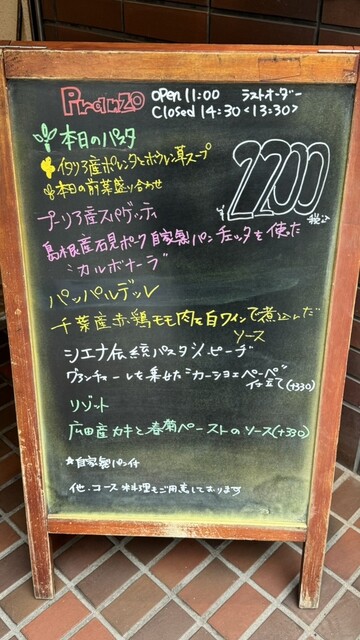 Pranzo open 11:00 ラストオーダー
Closed 14:30 <13:30>
本日のパスタ
イタリア産ポレンタとポルチーニ茸スープ
本日の前菜盛り合わせ
¥2200 税込
プーリア産スパゲッティ
島根県産石見ポーク自家製パンチェッタを使った
"カルボナーラ"
パッパルデッレ
千葉産赤鶏モモ肉を白ワインで煮込んだ
ソース
シエナ伝統パスタ ピーチ
グアンチャーレを集めた"カーショエペーペ"
仕立て(+330)
リゾット
広田産カキと春菊ペーストのソース(+330)
★自家製パン付
他、コース料理もご用意しております